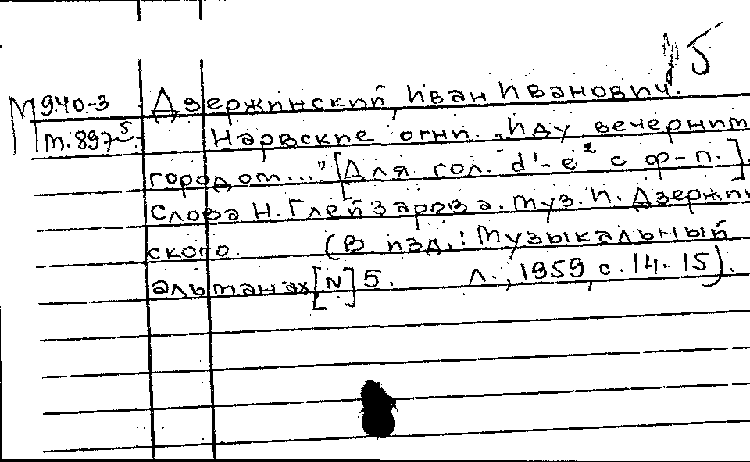 15
М 940-3 Дзержинский, Иван Иванович.
т. 897⁵ Нарвские огни. „Иду вечерним
городом..." [Для гол. d¹-e² с ф-п.].
Слова Н. Глейзарова. Муз. И. Дзержин
ского. (В изд.: Музыкальный
альманах, [N] 5. Л., 1959, с. 14-15).